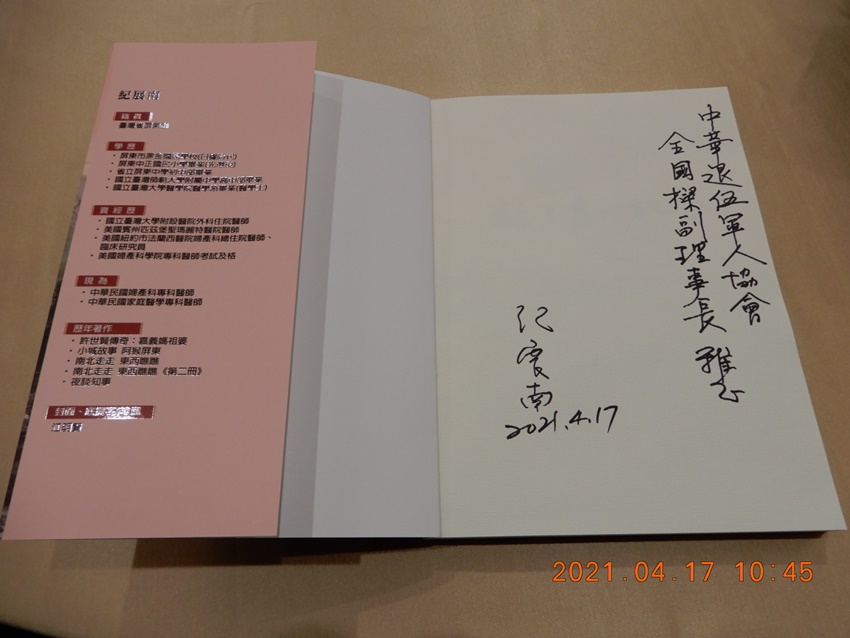 紀展南
籍貫
臺灣省屏東縣
學歷
・省立屏東中學初中部畢業
・國立臺灣師範大學附屬中學高中部畢業
・國立臺灣大學醫學院醫學系畢業(醫學士)
資經歷
・國立臺灣大學附設醫院外科住院醫師
・美國賓州匹茲堡聖瑪麗特醫院醫師
・美國紐約市法蘭西醫院婦產科總住院醫師、
臨床研究員
・美國婦產科學院專科醫師考試及格
現為
・中華民國婦產科專科醫師
・中華民國家庭醫學專科醫師
歷年著作
・許世賢傳奇：嘉義媽祖婆
・小城故事 阿猴屏東
・南北走走 東西瞧瞧
・南北走走 東西瞧瞧《第二冊》
・夜談知事
江明賢
中華退伍軍人協會
全國樑副理事長 雅正
紀展南
2021.4.17
2021.04.17 10:45